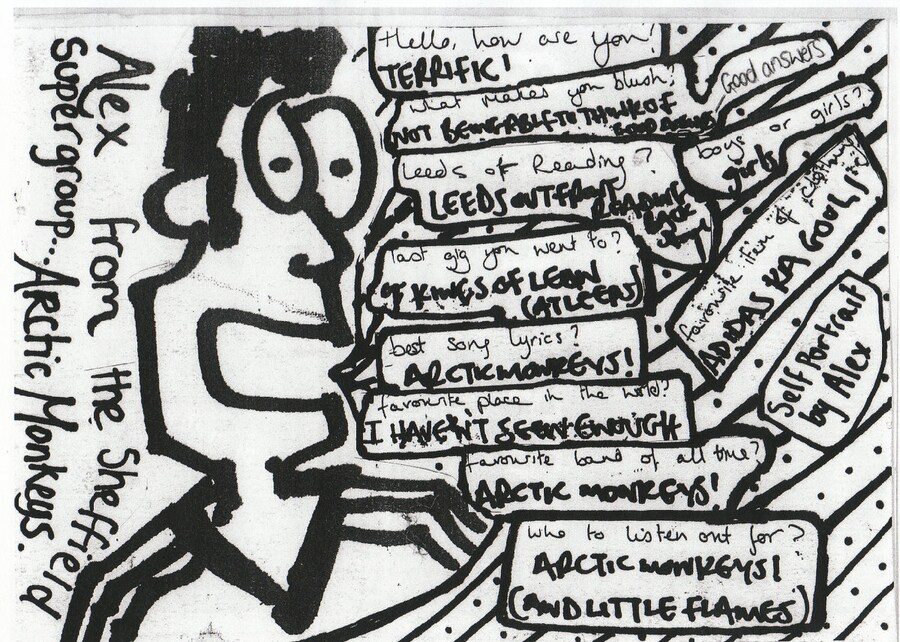 Alex from the Sheffield
Supergroup... Arctic Monkeys.
Hello, how are you?
TERRIFIC!
what makes you blush?
NOT BEING ABLE TO THINK OF
GOOD ANSWERS
Good answers
boys or girls?
girls
Leeds or Reading?
LEEDS OUT FRONT
READING
BACK
favourite item of clothing
ADIDAS KA GOOLS
last gig you went to?
KINGS OF LEON
(AT LEEDS)
best song lyrics?
ARCTIC MONKEYS!
Self Portrait
by Alex
favourite place in the world?
I HAVEN'T SEEN ENOUGH
favourite band of all time?
ARCTIC MONKEYS!
who to listen out for?
ARCTIC MONKEYS!
(AND LITTLE FLAMES)